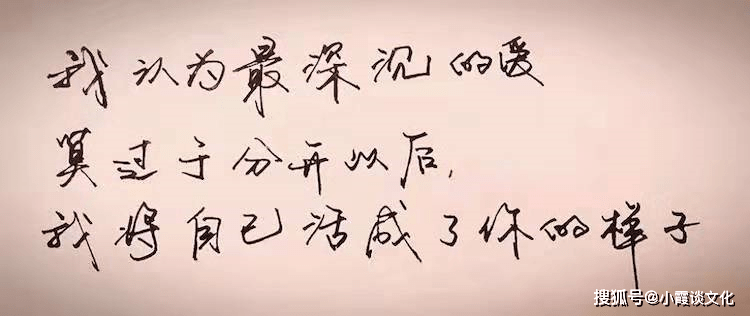 我认为最深沉的爱
莫过于分开以后,
我将自己活成了你的样子
搜狐号@小霞谈文化